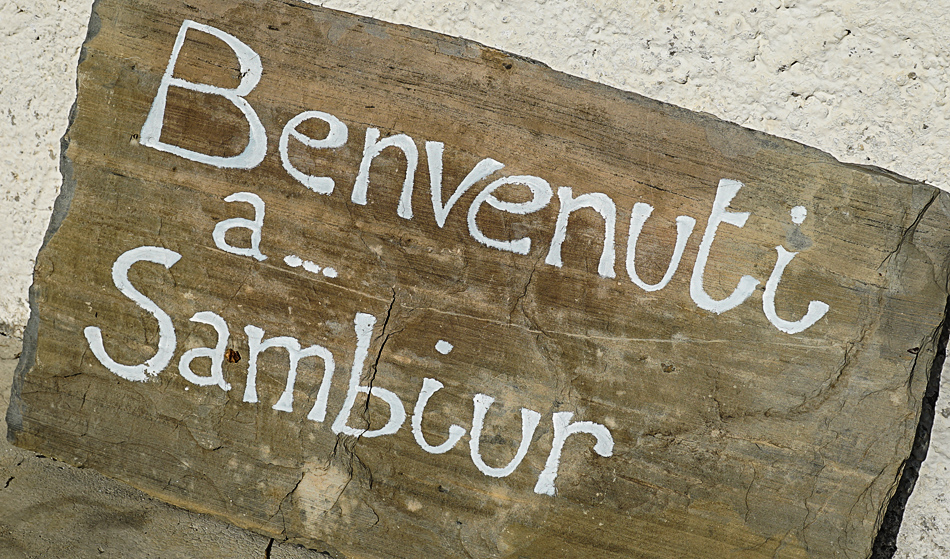 Benvenuti
a...
Sambiur